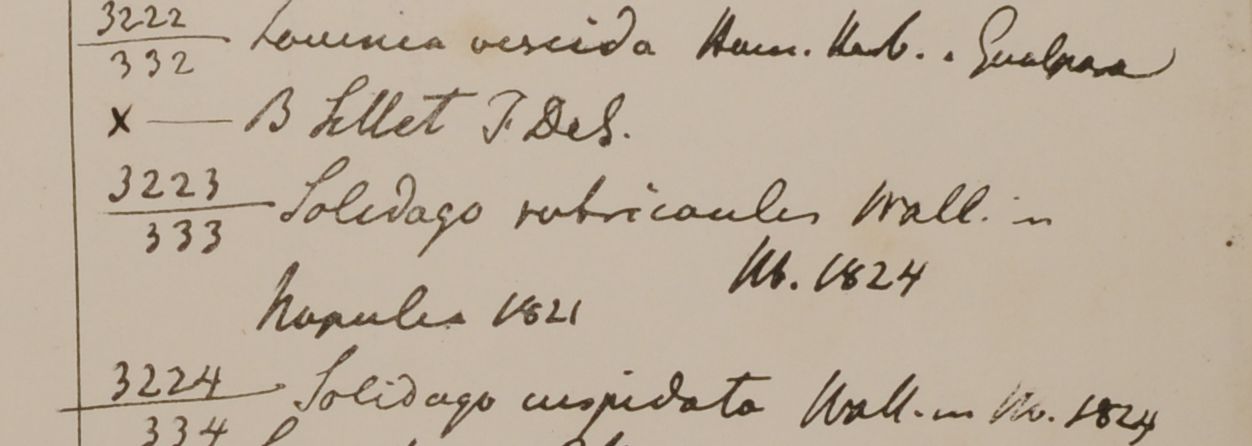 3222
332 viscida Ham. Herb. Gualpara
x — B Sillet F. DeS.
3223
333 Solidago rubricaulis Wall. in
Hb. 1824
Napalia 1821
3224 Solidago cuspidata Wall. in Hb. 1824
334